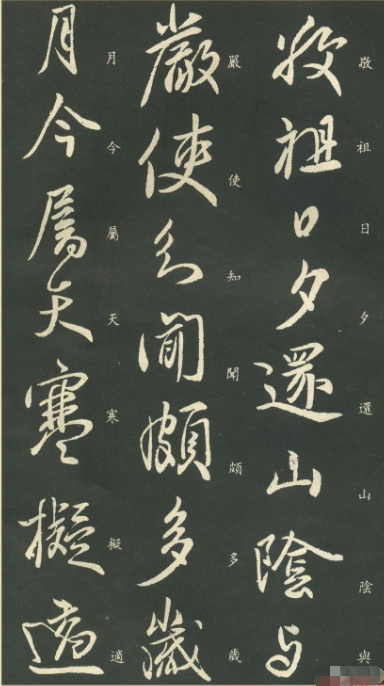 敬祖日夕還山陰與
嚴使知聞頗多歲
月今屬天寒擬適
敬祖日夕還山陰與
嚴使知聞頗多歲
月今屬天寒擬適